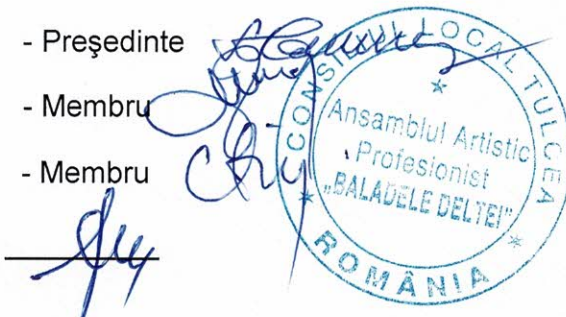 - Preşedinte
- Membru
- Membru
CONSILIUL LOCAL TULCEA
Ansamblul Artistic
Profesionist
„BALADELE DELTEI"
ROMÂNIA